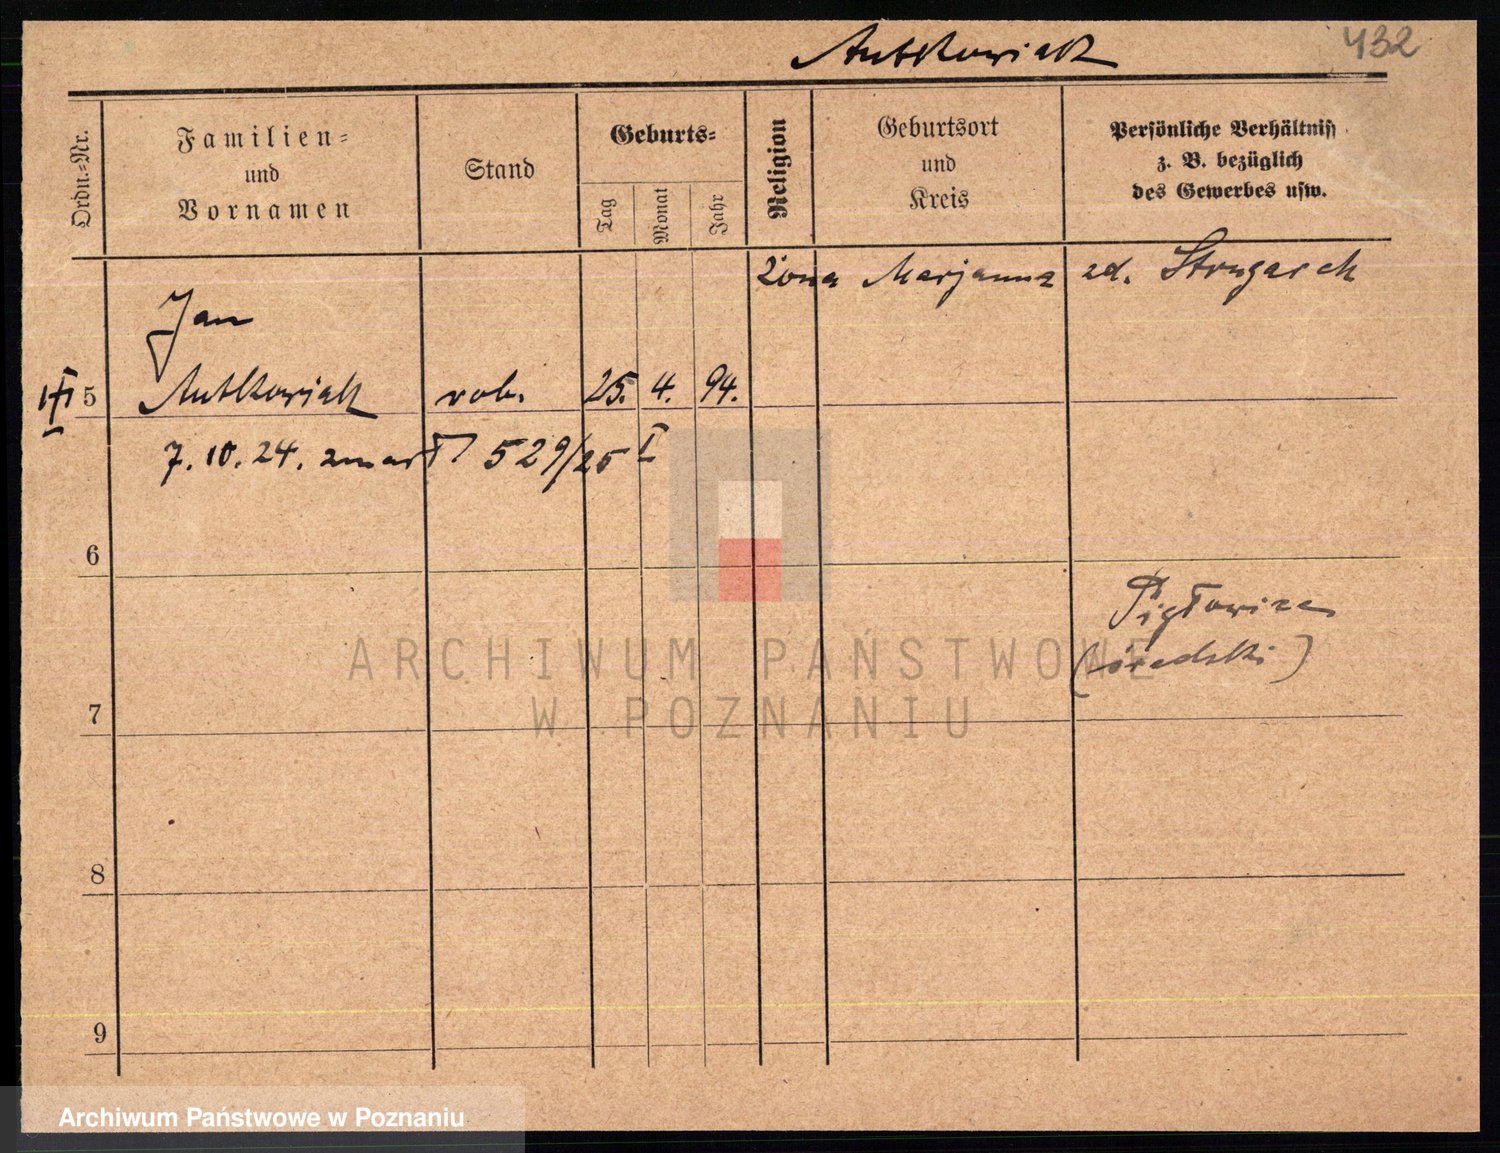 Antkowiak
432
Ordn.-Nr.
Familien-
und
Vornamen
Stand
Geburts-
Tag
Monat
Jahr
Religion
Geburtsort
und
Kreis
Persönliche Verhältniss
z. B. bezüglich
des Gewerbes usw.
żona Marjanna zd. Strugarek
Jan
5 Antkowiak rob. 25. 4. 94.
7. 10. 24. zmarł 529/25 I
6
Pigłowice
(średzki)
7
8
9
ARCHIWUM PAŃSTWOWE
W POZNANIU
Archiwum Państwowe w Poznaniu